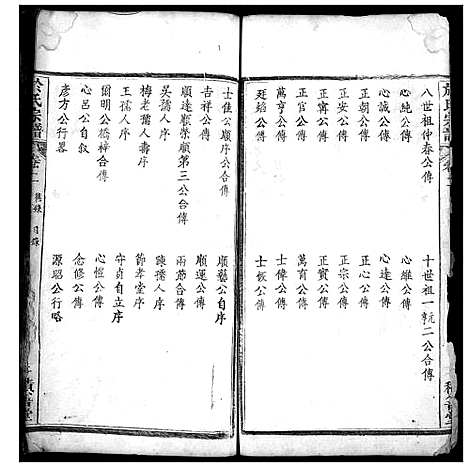 八世祖仲春公傳
心純公傳
心誠公傳
正朝公傳
正安公傳
正甯公傳
萬亨公傳
廷績公傳
十世祖一 二公合傳
心維公傳
心達公傳
正心公傳
正宗公傳
正賓公傳
士偉公傳
士俊公傳
士佳公傳
吉祥公傳
順達順榮順第三公合傳
吳孺人序
梅老孺人壽序
王孺人序
爾明公橋梓合傳
心呂公自叙
彥方公行畧
順藝公自序
順運公傳
兩節合傳
陳孺人序
節孝堂序
守貞自立序
心恒公傳
念修公傳
源昭公行略
於氏宗譜
卷二
目錄